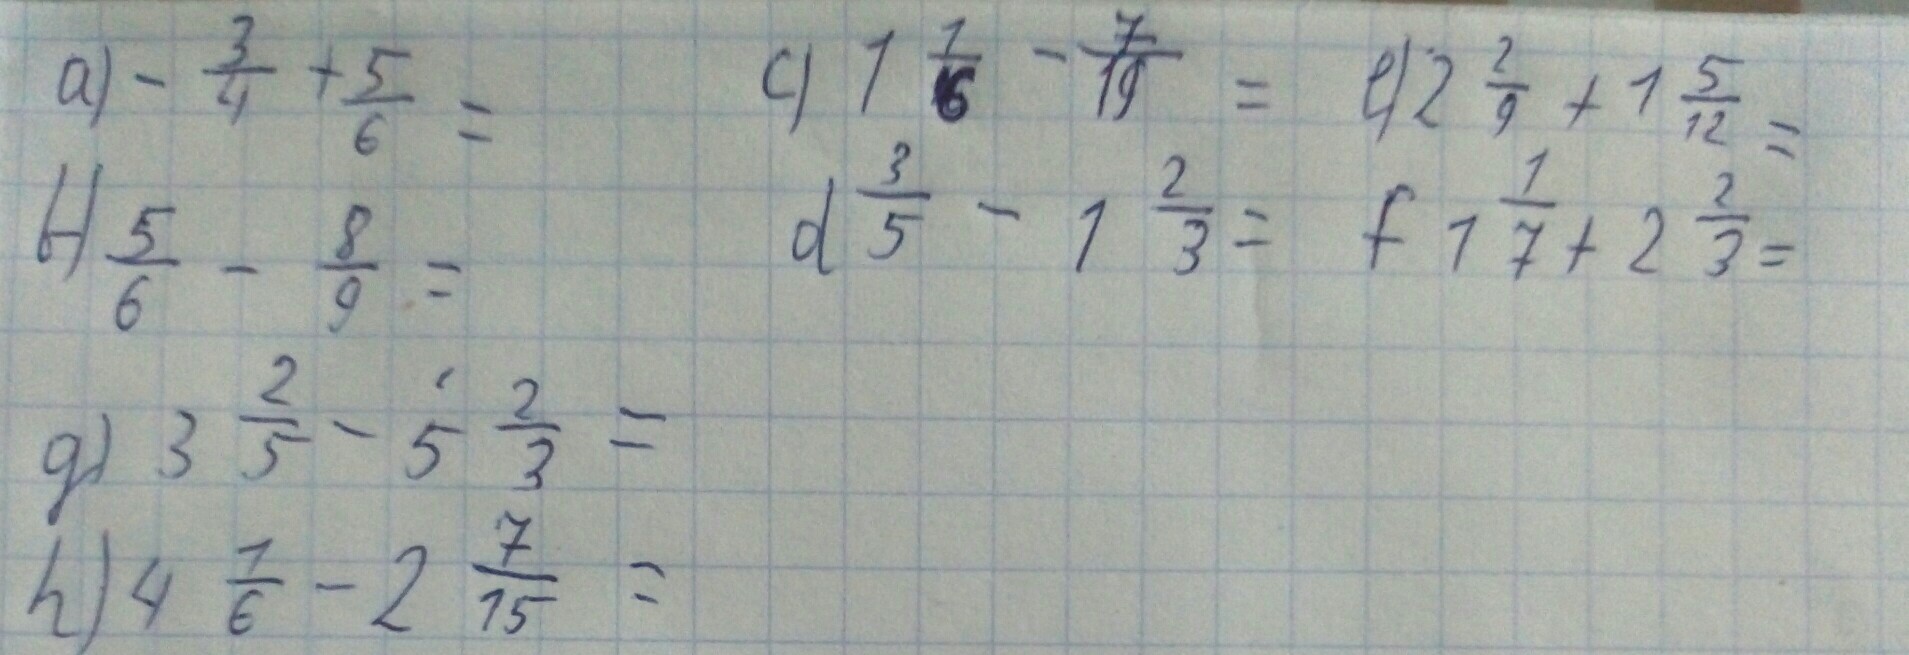 a) - 3/4 + 5/6 =
c) 1 1/6 - 7/19 =
e) 2 2/9 + 1 5/12 =
b) 5/6 - 8/9 =
d 3/5 - 1 2/3 =
f 1 1/7 + 2 2/3 =
g) 3 2/5 - 5 2/3 =
h) 4 1/6 - 2 7/15 =